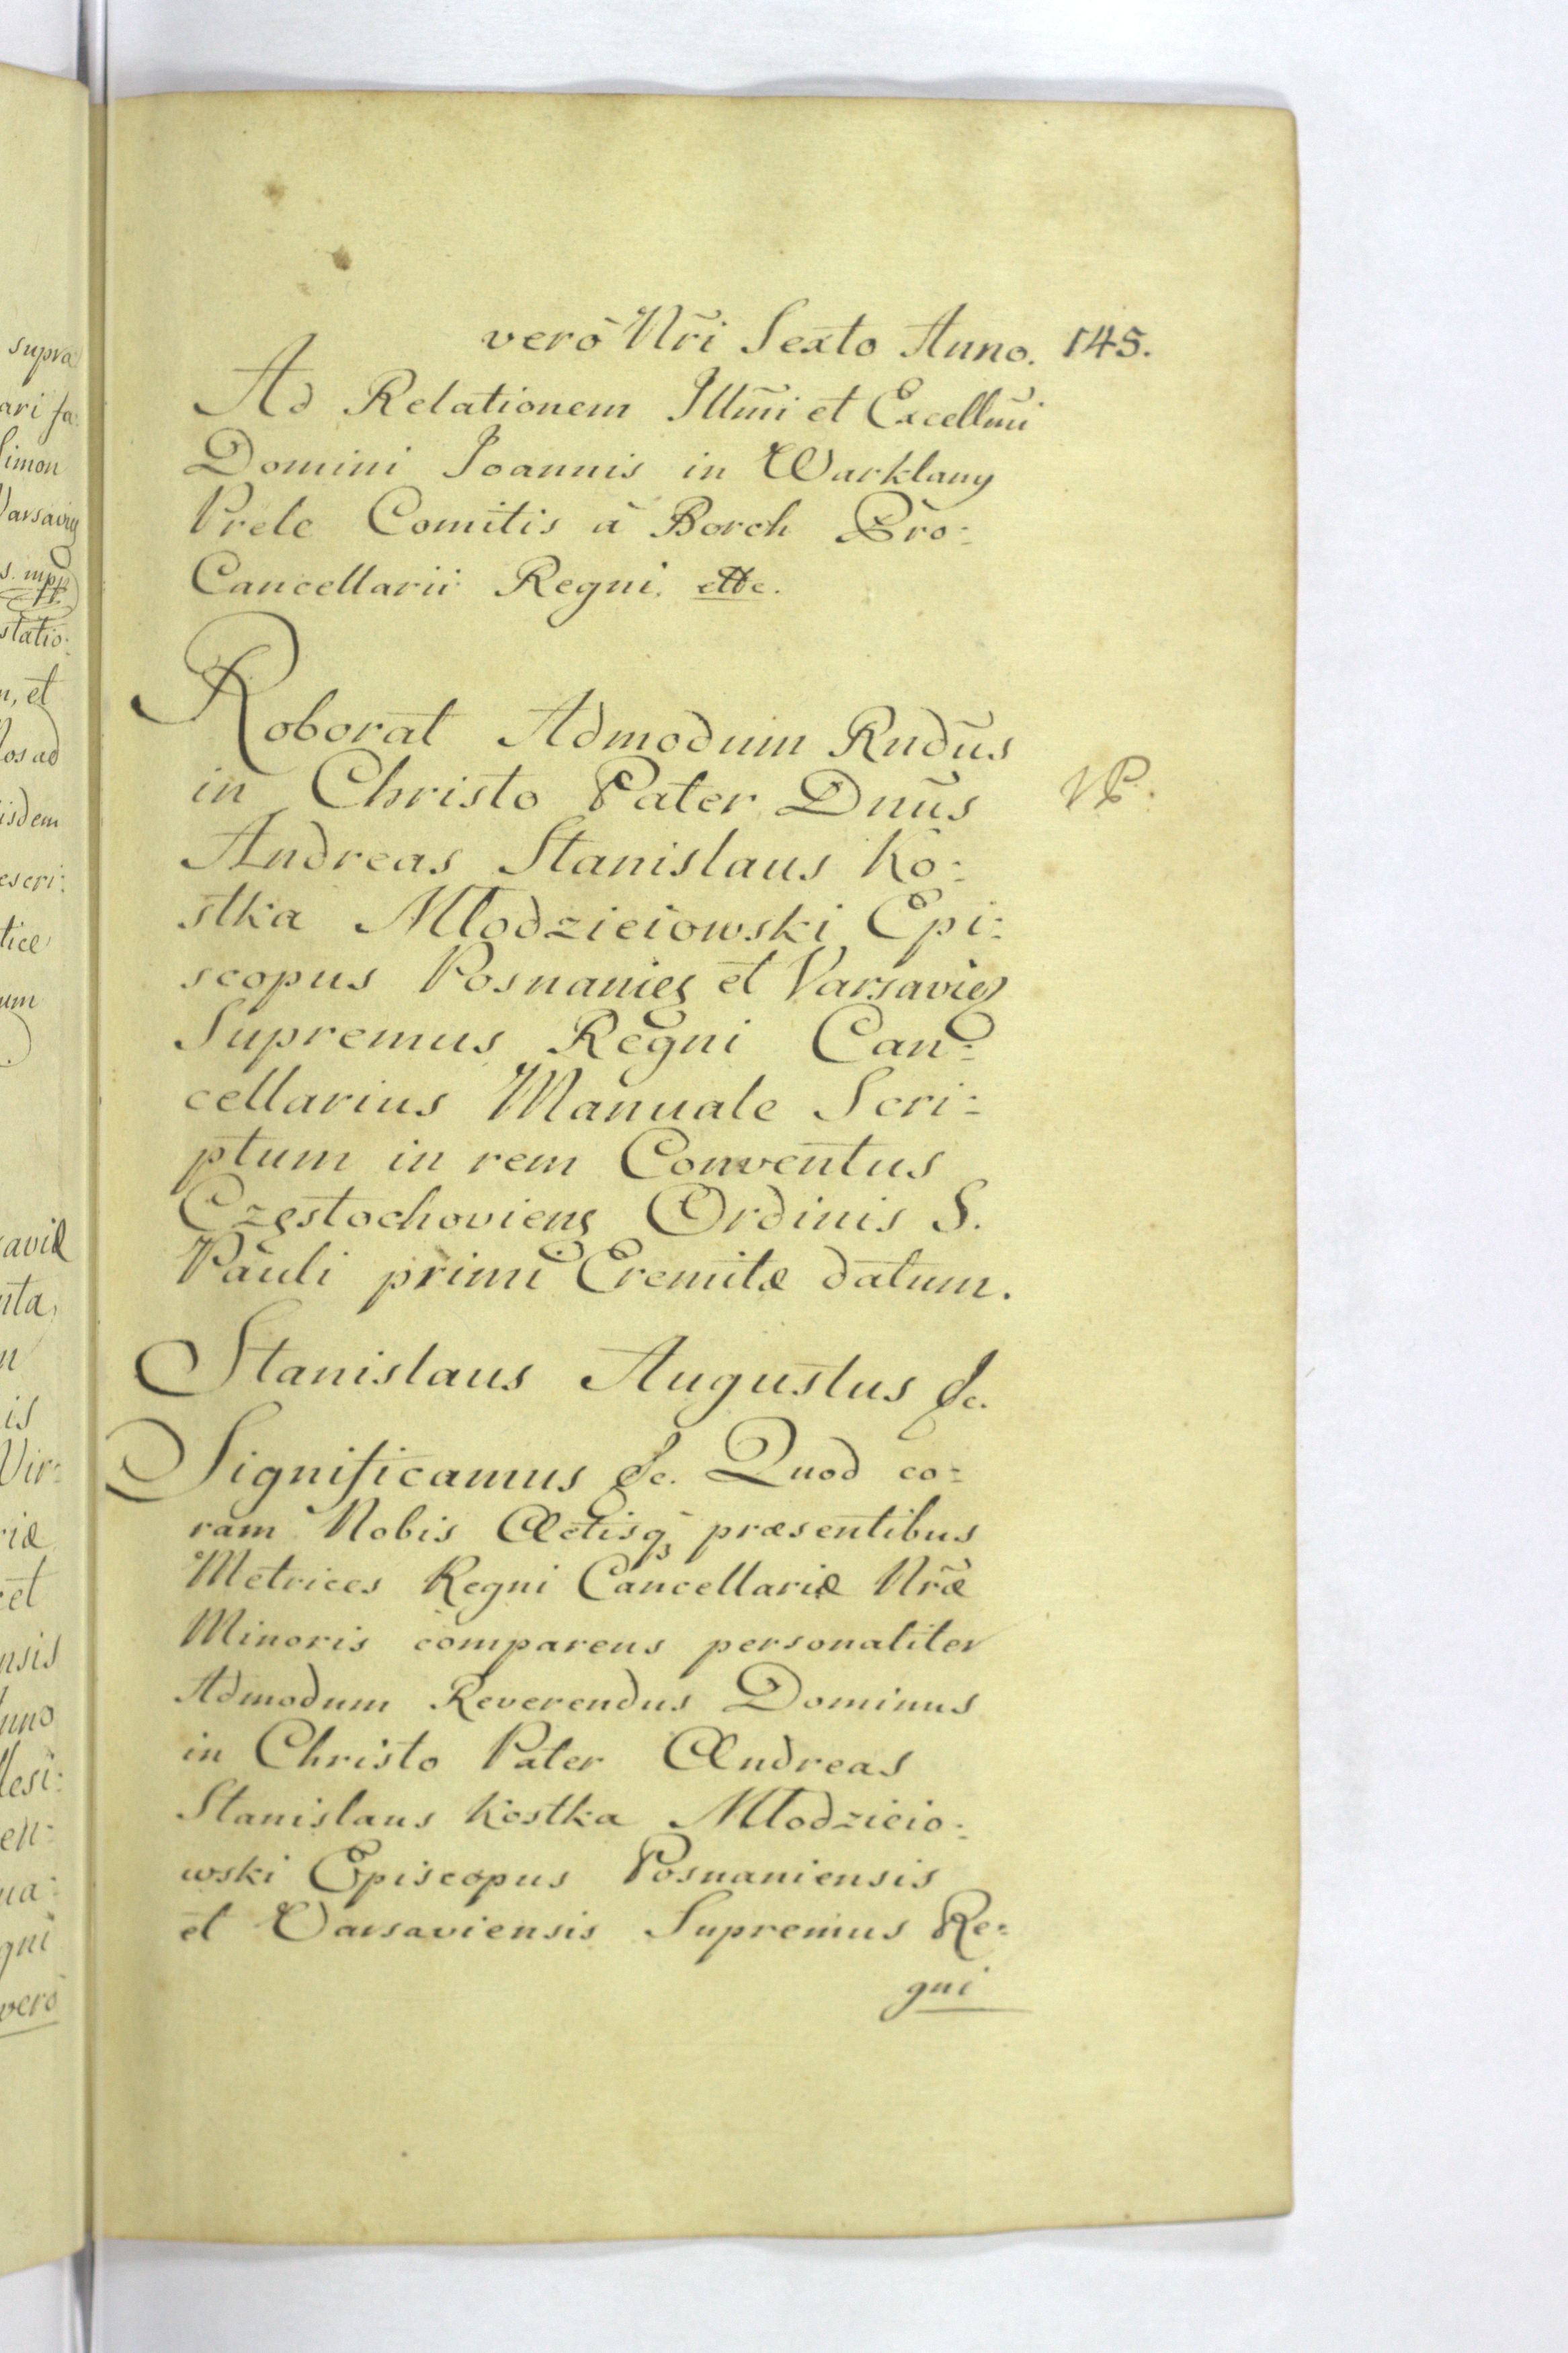 verò Nr̃i Sexto Anno. 145.
Ad Relationem Illm̃i et Excellm̃i
Domini Joannis in Warklany
Prele Comitis à Borch Pro-
Cancellarii Regni. ettc.
Roborat Admodum Rndũs
in Christo Pater Dnũs
Andreas Stanislaus Ko-
stka Młodzieiowski Epi-
scopus Posnanieș et Varsavieș
Supremus Regni Can-
cellarius Manuale Scri-
ptum in rem Conventus
Częstochovienș Ordinis S.
Pauli primi Eremitæ datum.
Stanislaus Augustus &c.
Significamus &c. Quod co-
ram Nobis Actisq; præsentibus
Metrices Regni Cancellariæ Nr̃æ
Minoris comparens personaliter
Admodum Reverendus Dominus
in Christo Pater Andreas
Stanislaus Kostka Młodzieio-
wski Episcopus Posnaniensis
et Varsaviensis Supremus Re-
gni
supra
ari fa:
Simon
Varsavię
s. mpp
statio:
n, et
Nos ad
isdem
escri:
tice
um
avię
nta,
is
Vir:
riæ
et
nsis
lesi:
en:
na:
gni
vero